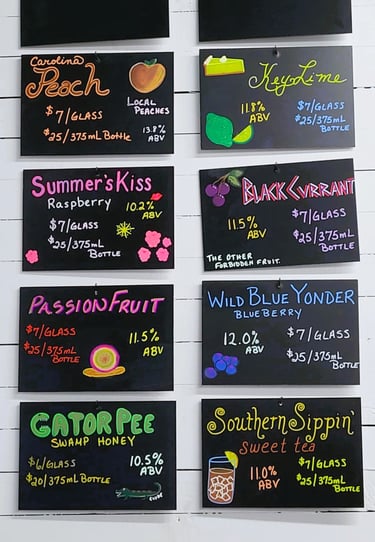 Carolina
Peach
$7/GLASS
$25/375mL Bottle
LOCAL
PEACHES
13.8%
ABV
Key-Lime
11.8%
ABV
$7/GLASS
$25/375mL
BOTTLE
Summer's Kiss
Raspberry
$7/GLASS
$25/375mL
BOTTLE
10.2%
ABV
BLACK CURRANT
11.5%
ABV
$7/GLASS
$25/375mL
BOTTLE
THE OTHER
FORBIDDEN FRUIT.
PASSION FRUIT
$7/GLASS
$25/375mL
BOTTLE
11.5%
ABV
WILD BLUE YONDER
BLUEBERRY
12.0%
ABV
$7/GLASS
$25/375mL
BOTTLE
GATOR PEE
SWAMP HONEY
$6/GLASS
$20/375mL BOTTLE
10.5%
ABV
Southern Sippin'
Sweet tea
11.0%
ABV
$7/GLASS
$25/375mL
BOTTLE